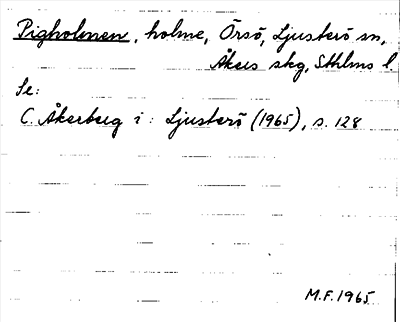 Pigholmen, holme, Örsö, Ljusterö sn,
Åkers skg, Sthlms l
Se:
C. Åkerberg i: Ljusterö (1965), s. 128
M.F. 1965